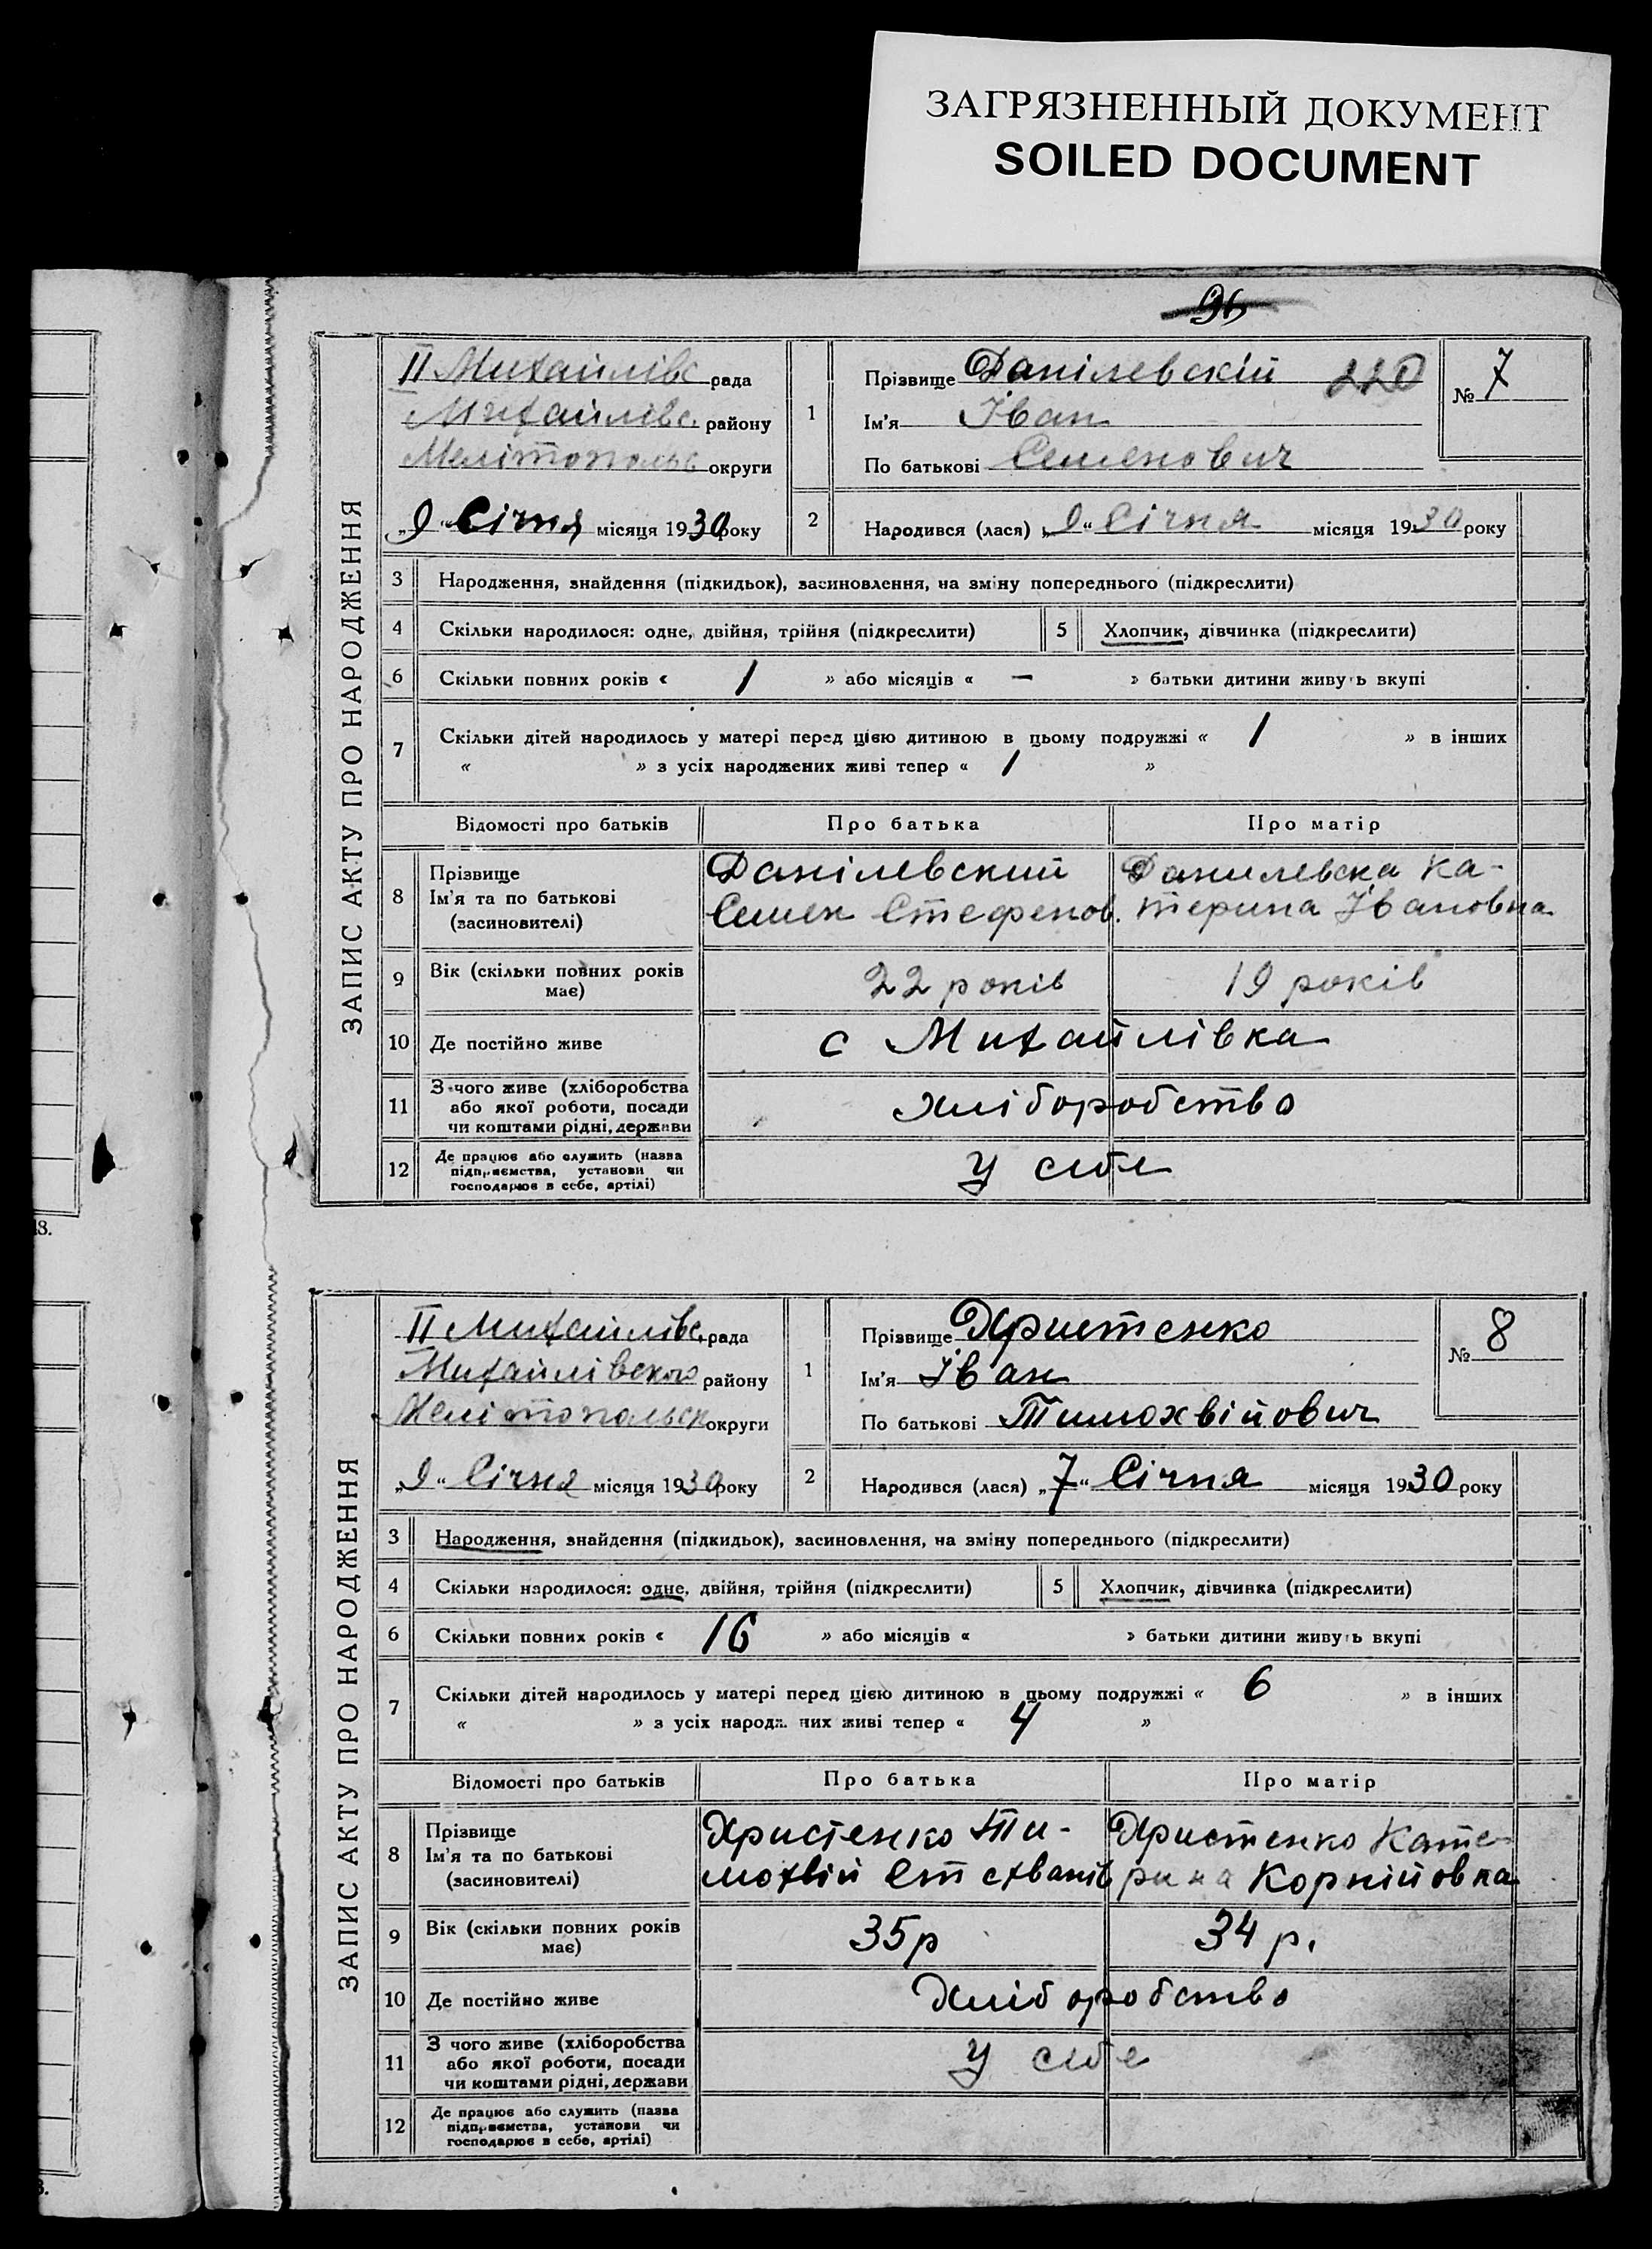 ЗАГРЯЗНЕННЫЙ ДОКУМЕНТ
SOILED DOCUMENT
96
ЗАПИС АКТУ ПРО НАРОДЖЕННЯ
ІІ Михайлівс рада
Михайлівс. району
Мелітопольс округи
„9“ Січня місяця 1930 року
1 Прізвище Данілевскій 220
Ім'я Іван
По батькові Семенович
№ 7
2 Народився (лася) „9“ Січня місяця 1930 року
3 Народження, знайдення (підкидьок), засиновлення, на зміну попереднього (підкреслити)
4 Скільки народилося: одне, двійня, трійня (підкреслити) 5 Хлопчик, дівчинка (підкреслити)
6 Скільки повних років « 1 » або місяців « — » батьки дитини живуть вкупі
7 Скільки дітей народилось у матері перед цією дитиною в цьому подружжі « 1 » в інших
« » з усіх народжених живі тепер « 1 »
Відомості про батьків Про батька Про матір
8 Прізвище
Ім'я та по батькові
(засиновителі)
Данілевский
Семен Стефенов.
Данилевска Ка-
терина Івановна
9 Вік (скільки повних років
має)
22 років 19 років
10 Де постійно живе с Михайлівка
11 З чого живе (хліборобства
або якої роботи, посади
чи коштами рідні, держави
хліборобство
12 Де працює або служить (назва
підприємства, установи чи
господарює в себе, артілі)
У себе
ЗАПИС АКТУ ПРО НАРОДЖЕННЯ
ІІ Михайлівс. рада
Михайлівского району
Мелітопольск округи
„9“ Січня місяця 1930 року
1 Прізвище Христенко
Ім'я Іван
По батькові Тимохвійович
№ 8
2 Народився (лася) „7“ Січня місяця 1930 року
3 Народження, знайдення (підкидьок), засиновлення, на зміну попереднього (підкреслити)
4 Скільки народилося: одне, двійня, трійня (підкреслити) 5 Хлопчик, дівчинка (підкреслити)
6 Скільки повних років « 16 » або місяців « » батьки дитини живуть вкупі
7 Скільки дітей народилось у матері перед цією дитиною в цьому подружжі « 6 » в інших
« » з усіх народж. них живі тепер « 4 »
Відомості про батьків Про батька Про матір
8 Прізвище
Ім'я та по батькові
(засиновителі)
Христенко Ти-
мохвій Стехванів
Христенко Кате-
рина Корнійовна
9 Вік (скільки повних років
має)
35р 34 р.
10 Де постійно живе Хліборобство
11 З чого живе (хліборобства
або якої роботи, посади
чи коштами рідні, держави
У себе
12 Де працює або служить (назва
підприємства, установи чи
господарює в себе, артілі)